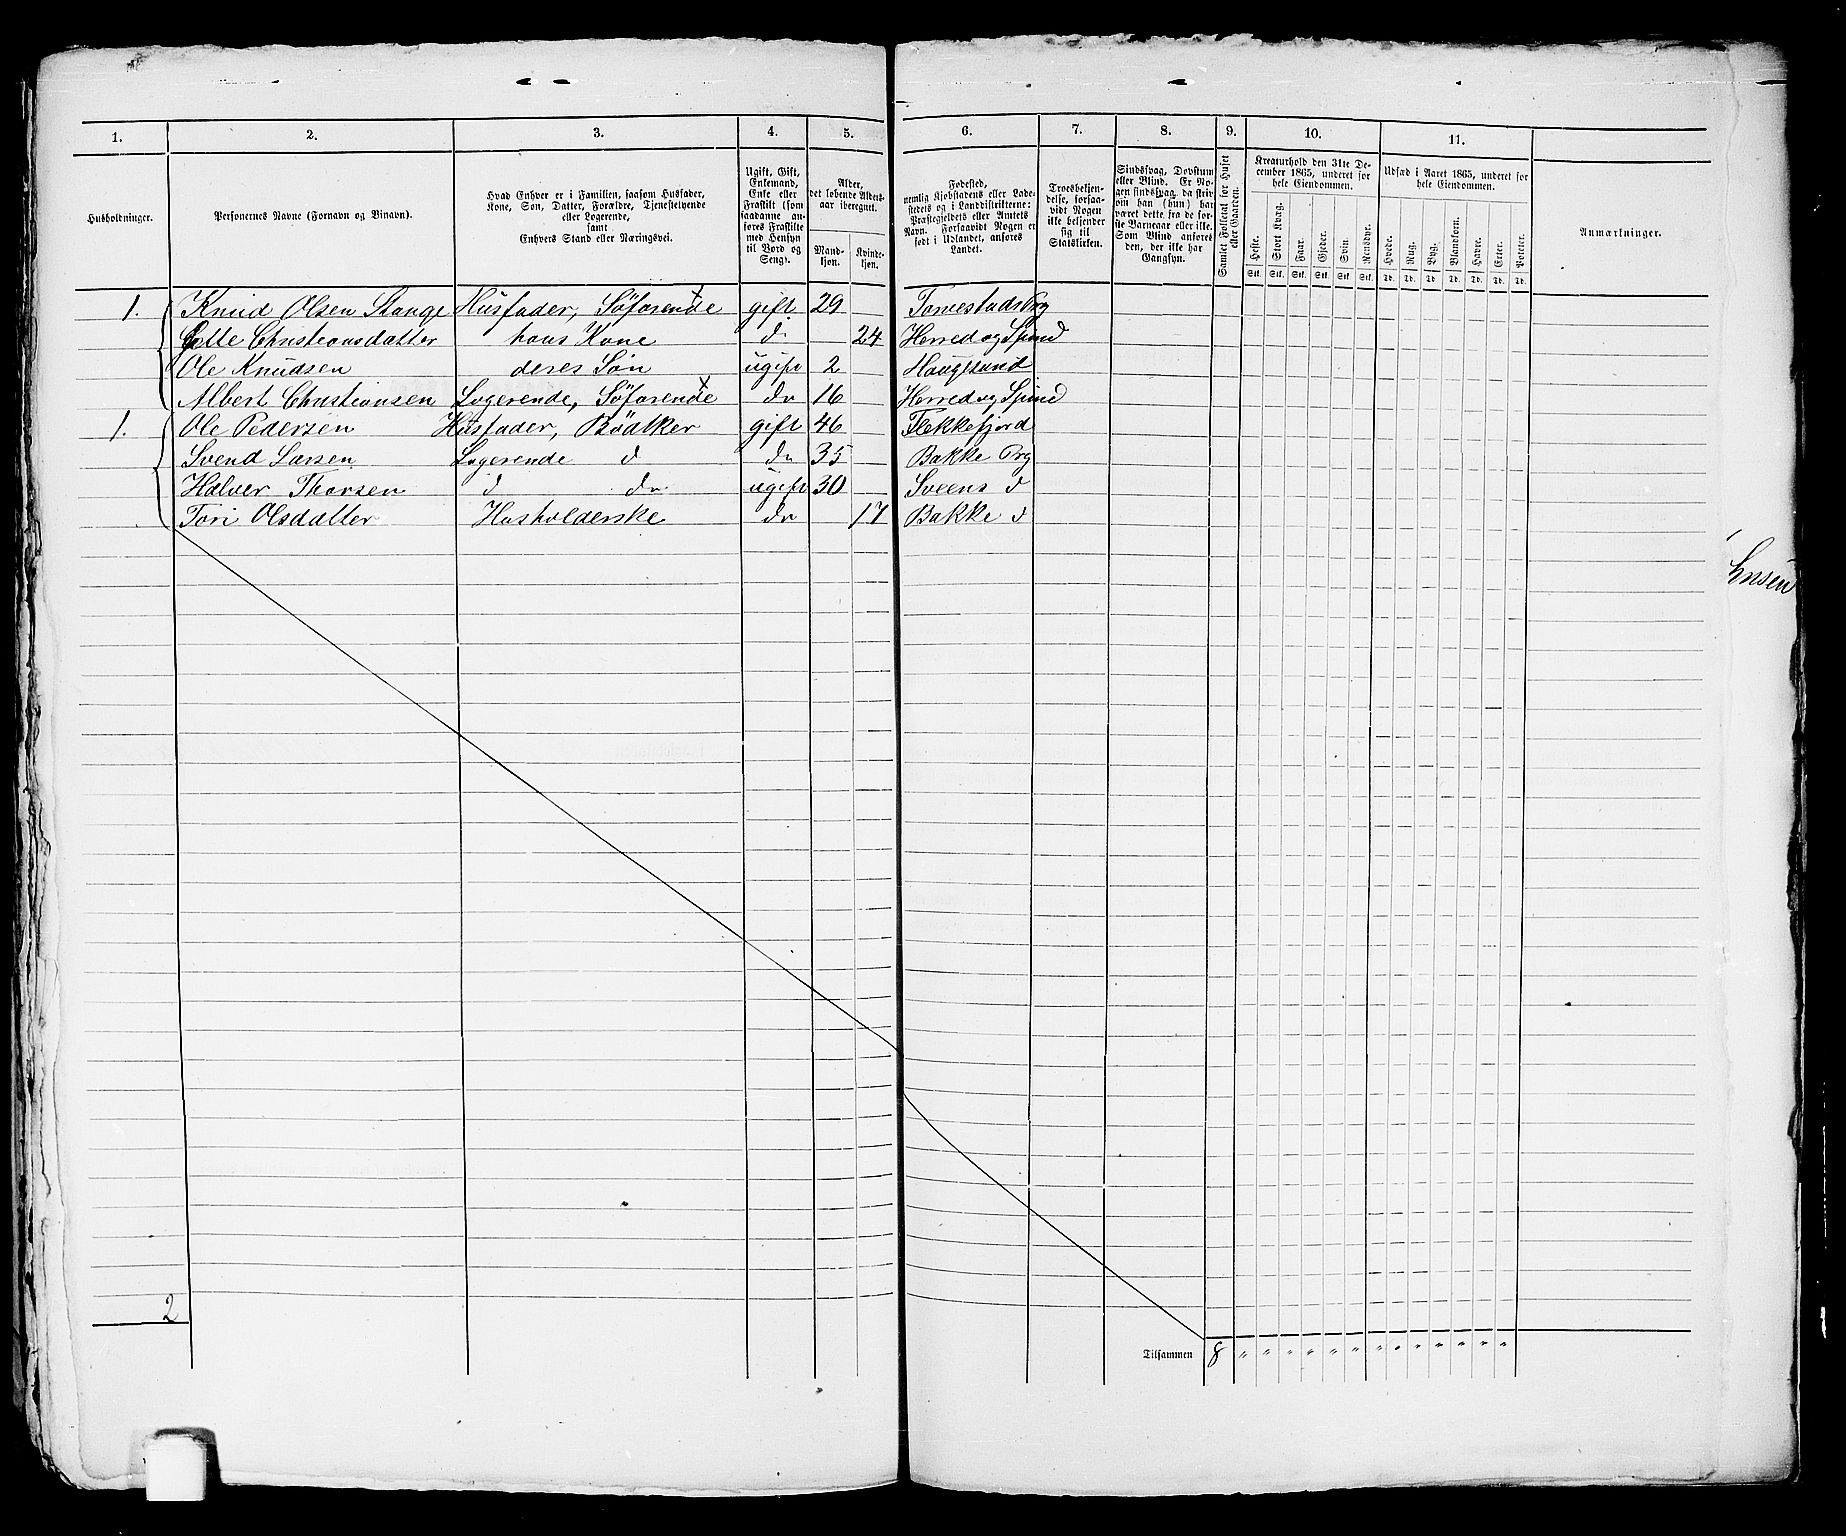 1. 2. 3. 4. 5. 6. 7. 8. 9. 10. 11.
Husholdninger.
Personernes Navne (Fornavn og Binavn).
Hvad Enhver er i Familien, saasom Husfader,
Kone, Søn, Datter, Forældre, Tjenestetyende
eller Logerende,
samt
Enhvers Stand eller Næringsvei.
Ugift, Gift,
Enkemand,
Enke eller
Fraskilt (som
saadanne an-
føres Fraskilte
med Hensyn
til Bord og
Seng).
Alder,
det løbende Alders-
aar iberegnet.
Mand-
kjøn.
Kvinde-
kjøn.
Fødested,
nemlig Kjøbstadens eller Lade-
stedets og i Landdistrikterne:
Præstegjeldets eller Amtets
Navn. Forsaavidt Nogen er
født i Udlandet, anføres
Landet.
Troesbekjen-
delse, forsaa-
vidt Nogen
ikke bekjender
sig til
Statskirken.
Sindssvag, Døvstum
eller Blind. Er No-
gen sindssvag, da skriv
om han (hun) har
været dette fra de før-
ste Barneaar eller ikke.
Som Blind anføres
den, der ikke har
Gangsyn.
Samlet Folketal for Huset
eller Gaarden.
Kreaturhold den 31te De-
cember 1865, underet for
hele Eiendommen.
Heste. Stort Kvæg. Faar. Gjeder. Svin. Rensdyr.
Stk. Stk. Stk. Stk. Stk. Stk.
Udsæd i Aaret 1865, underet for
hele Eiendommen.
Hvede. Rug. Byg. Blandkorn. Havre. Erter. Poteter.
Td. Td. Td. Td. Td. Td. Td.
Anmærkninger.
1. Knud Olsen Stange Husfader, Söfarende gift 29 Torvestads Prg
Christiansdatter hans Kone d 24 Herred og Spind
Ole Knudsen deres Sön ugift 2 Haugesund
Albert Christiansen Logerende, Söfarende do 16 Herred og Spind
1. Ole Pedersen Husfader, Bödtker gift 46 Flekkefjord
Svend Larsen Logerende d do 35 Bakke Prg
Halver Thorsen d do ugift 30 Sveens d
Tori Olsdatter Husholderske do 17 Bakke d
2
Tilsammen 8 " " " " " " " " " " " " "